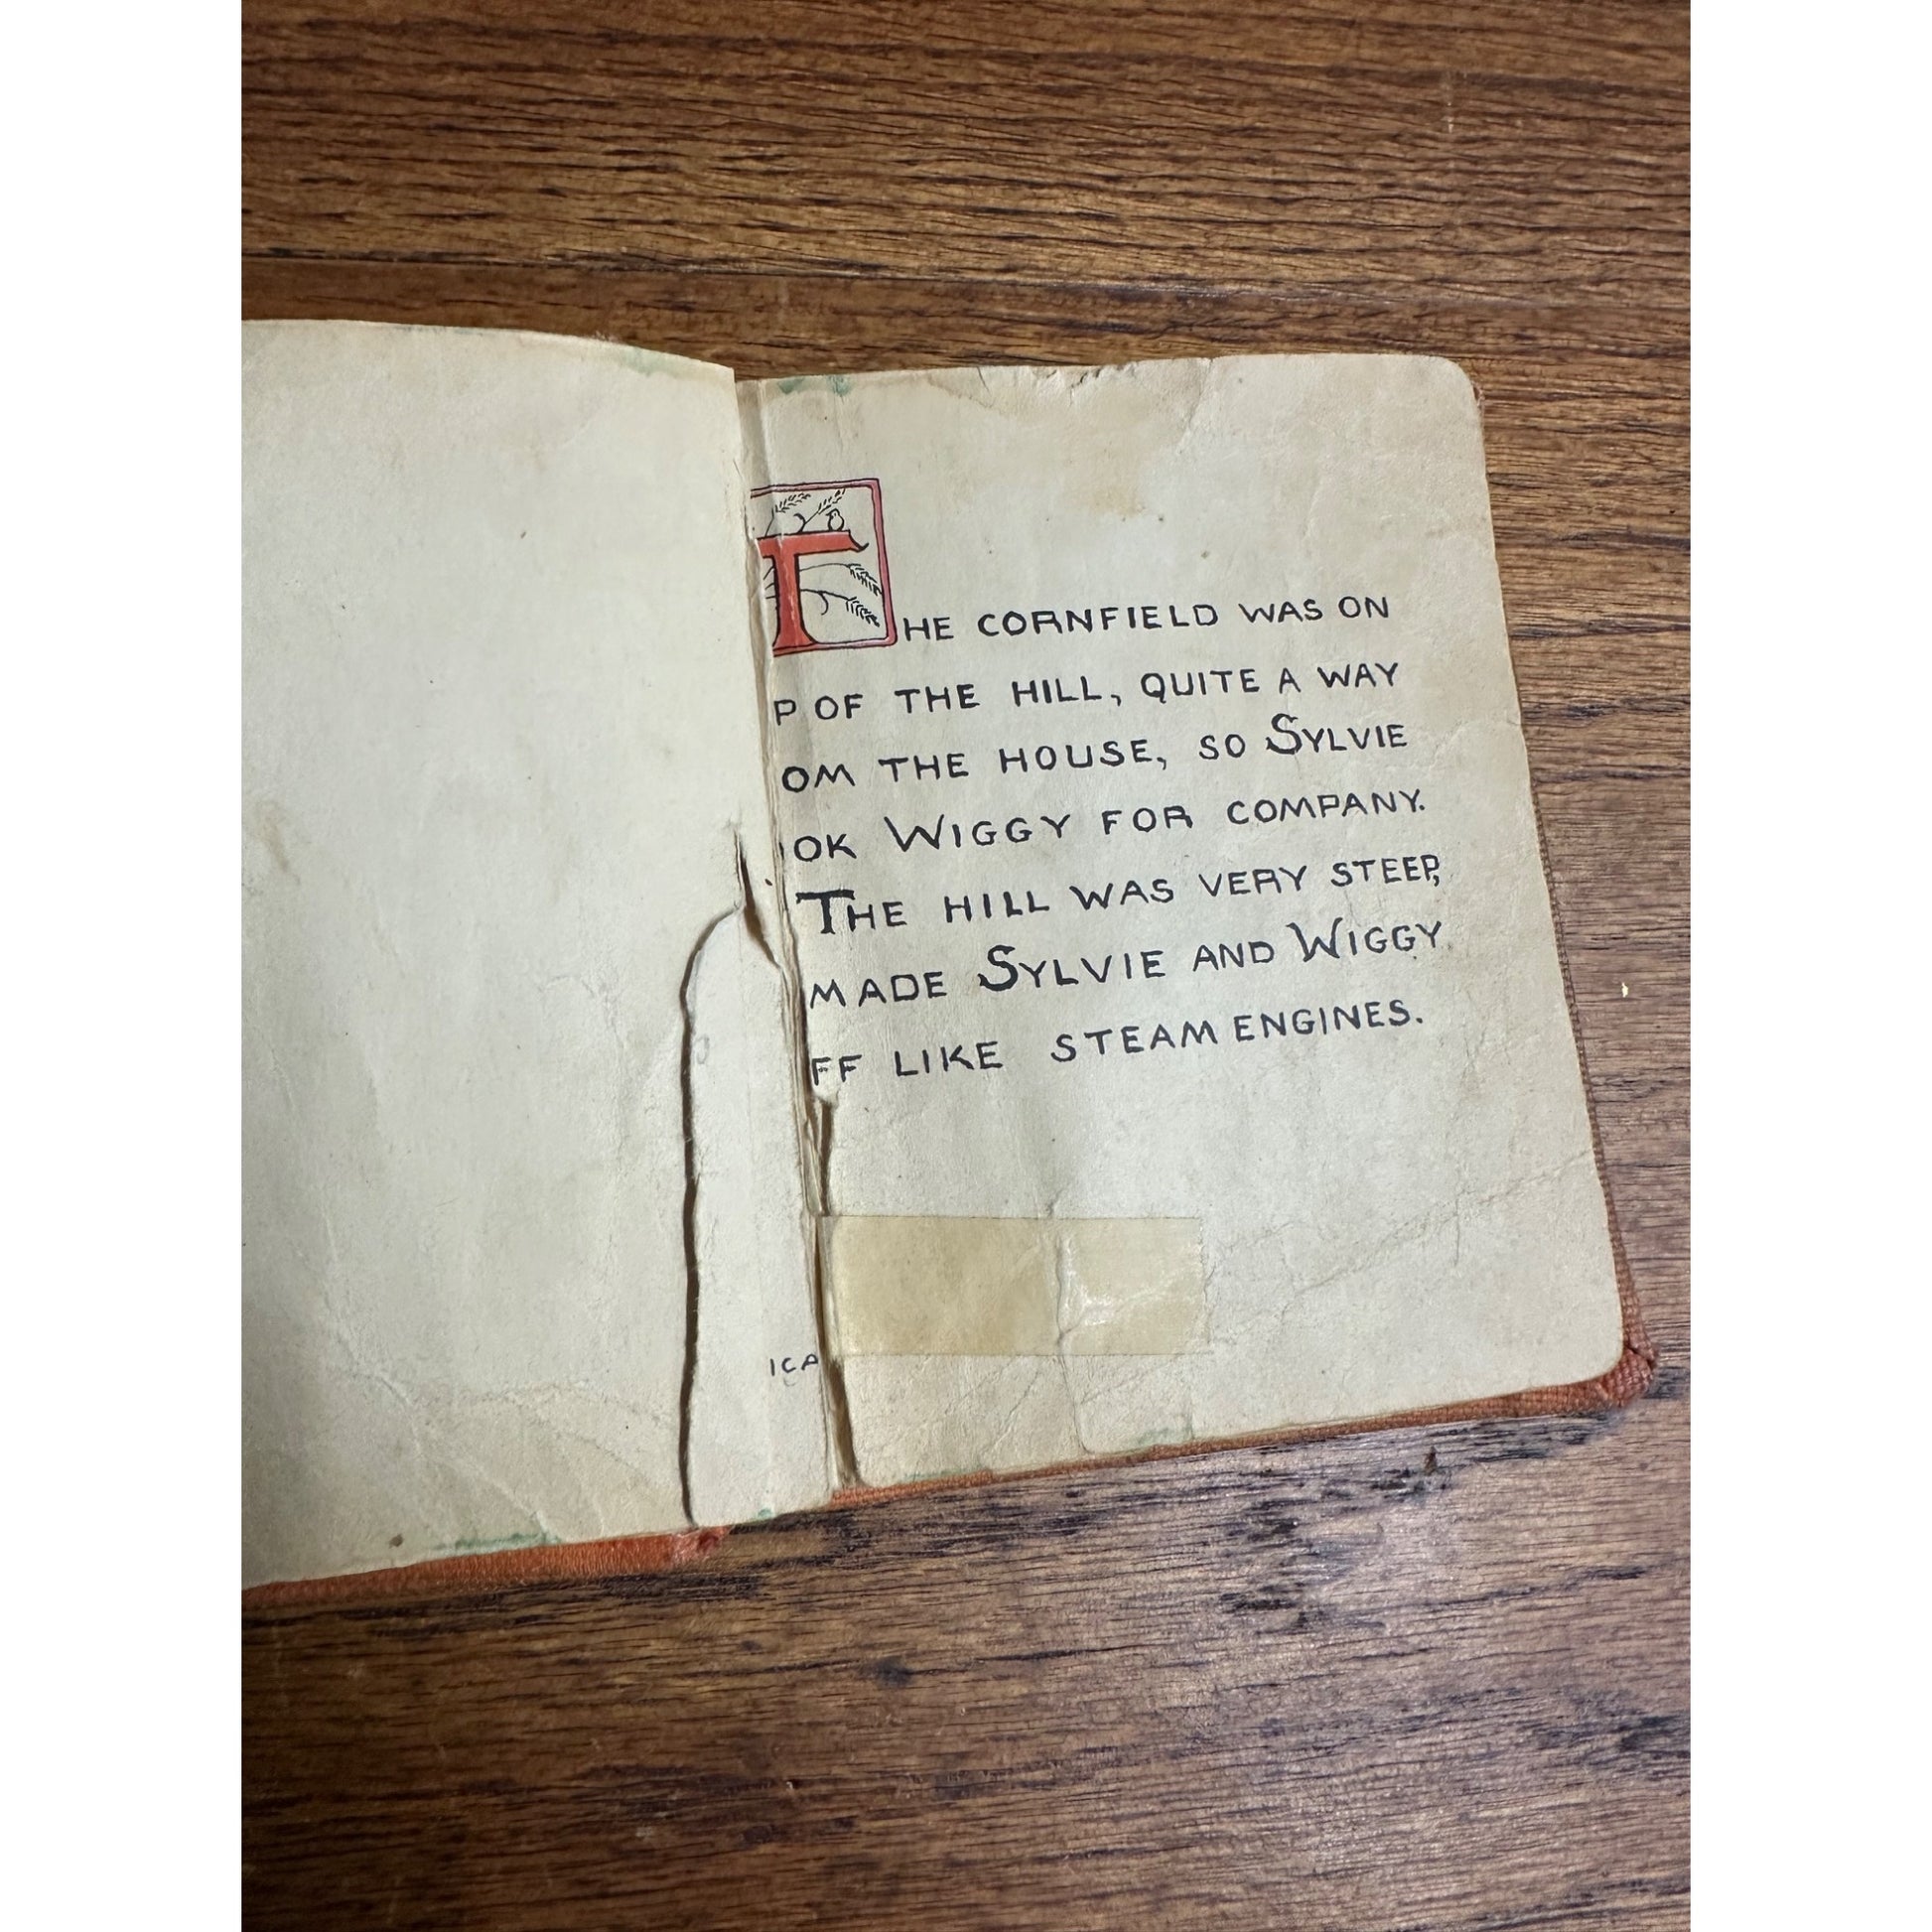 THE CORNFIELD WAS ON
P OF THE HILL, QUITE A WAY
OM THE HOUSE, SO SYLVIE
OK WIGGY FOR COMPANY.
THE HILL WAS VERY STEEP,
MADE SYLVIE AND WIGGY
FF LIKE STEAM ENGINES.
ICA